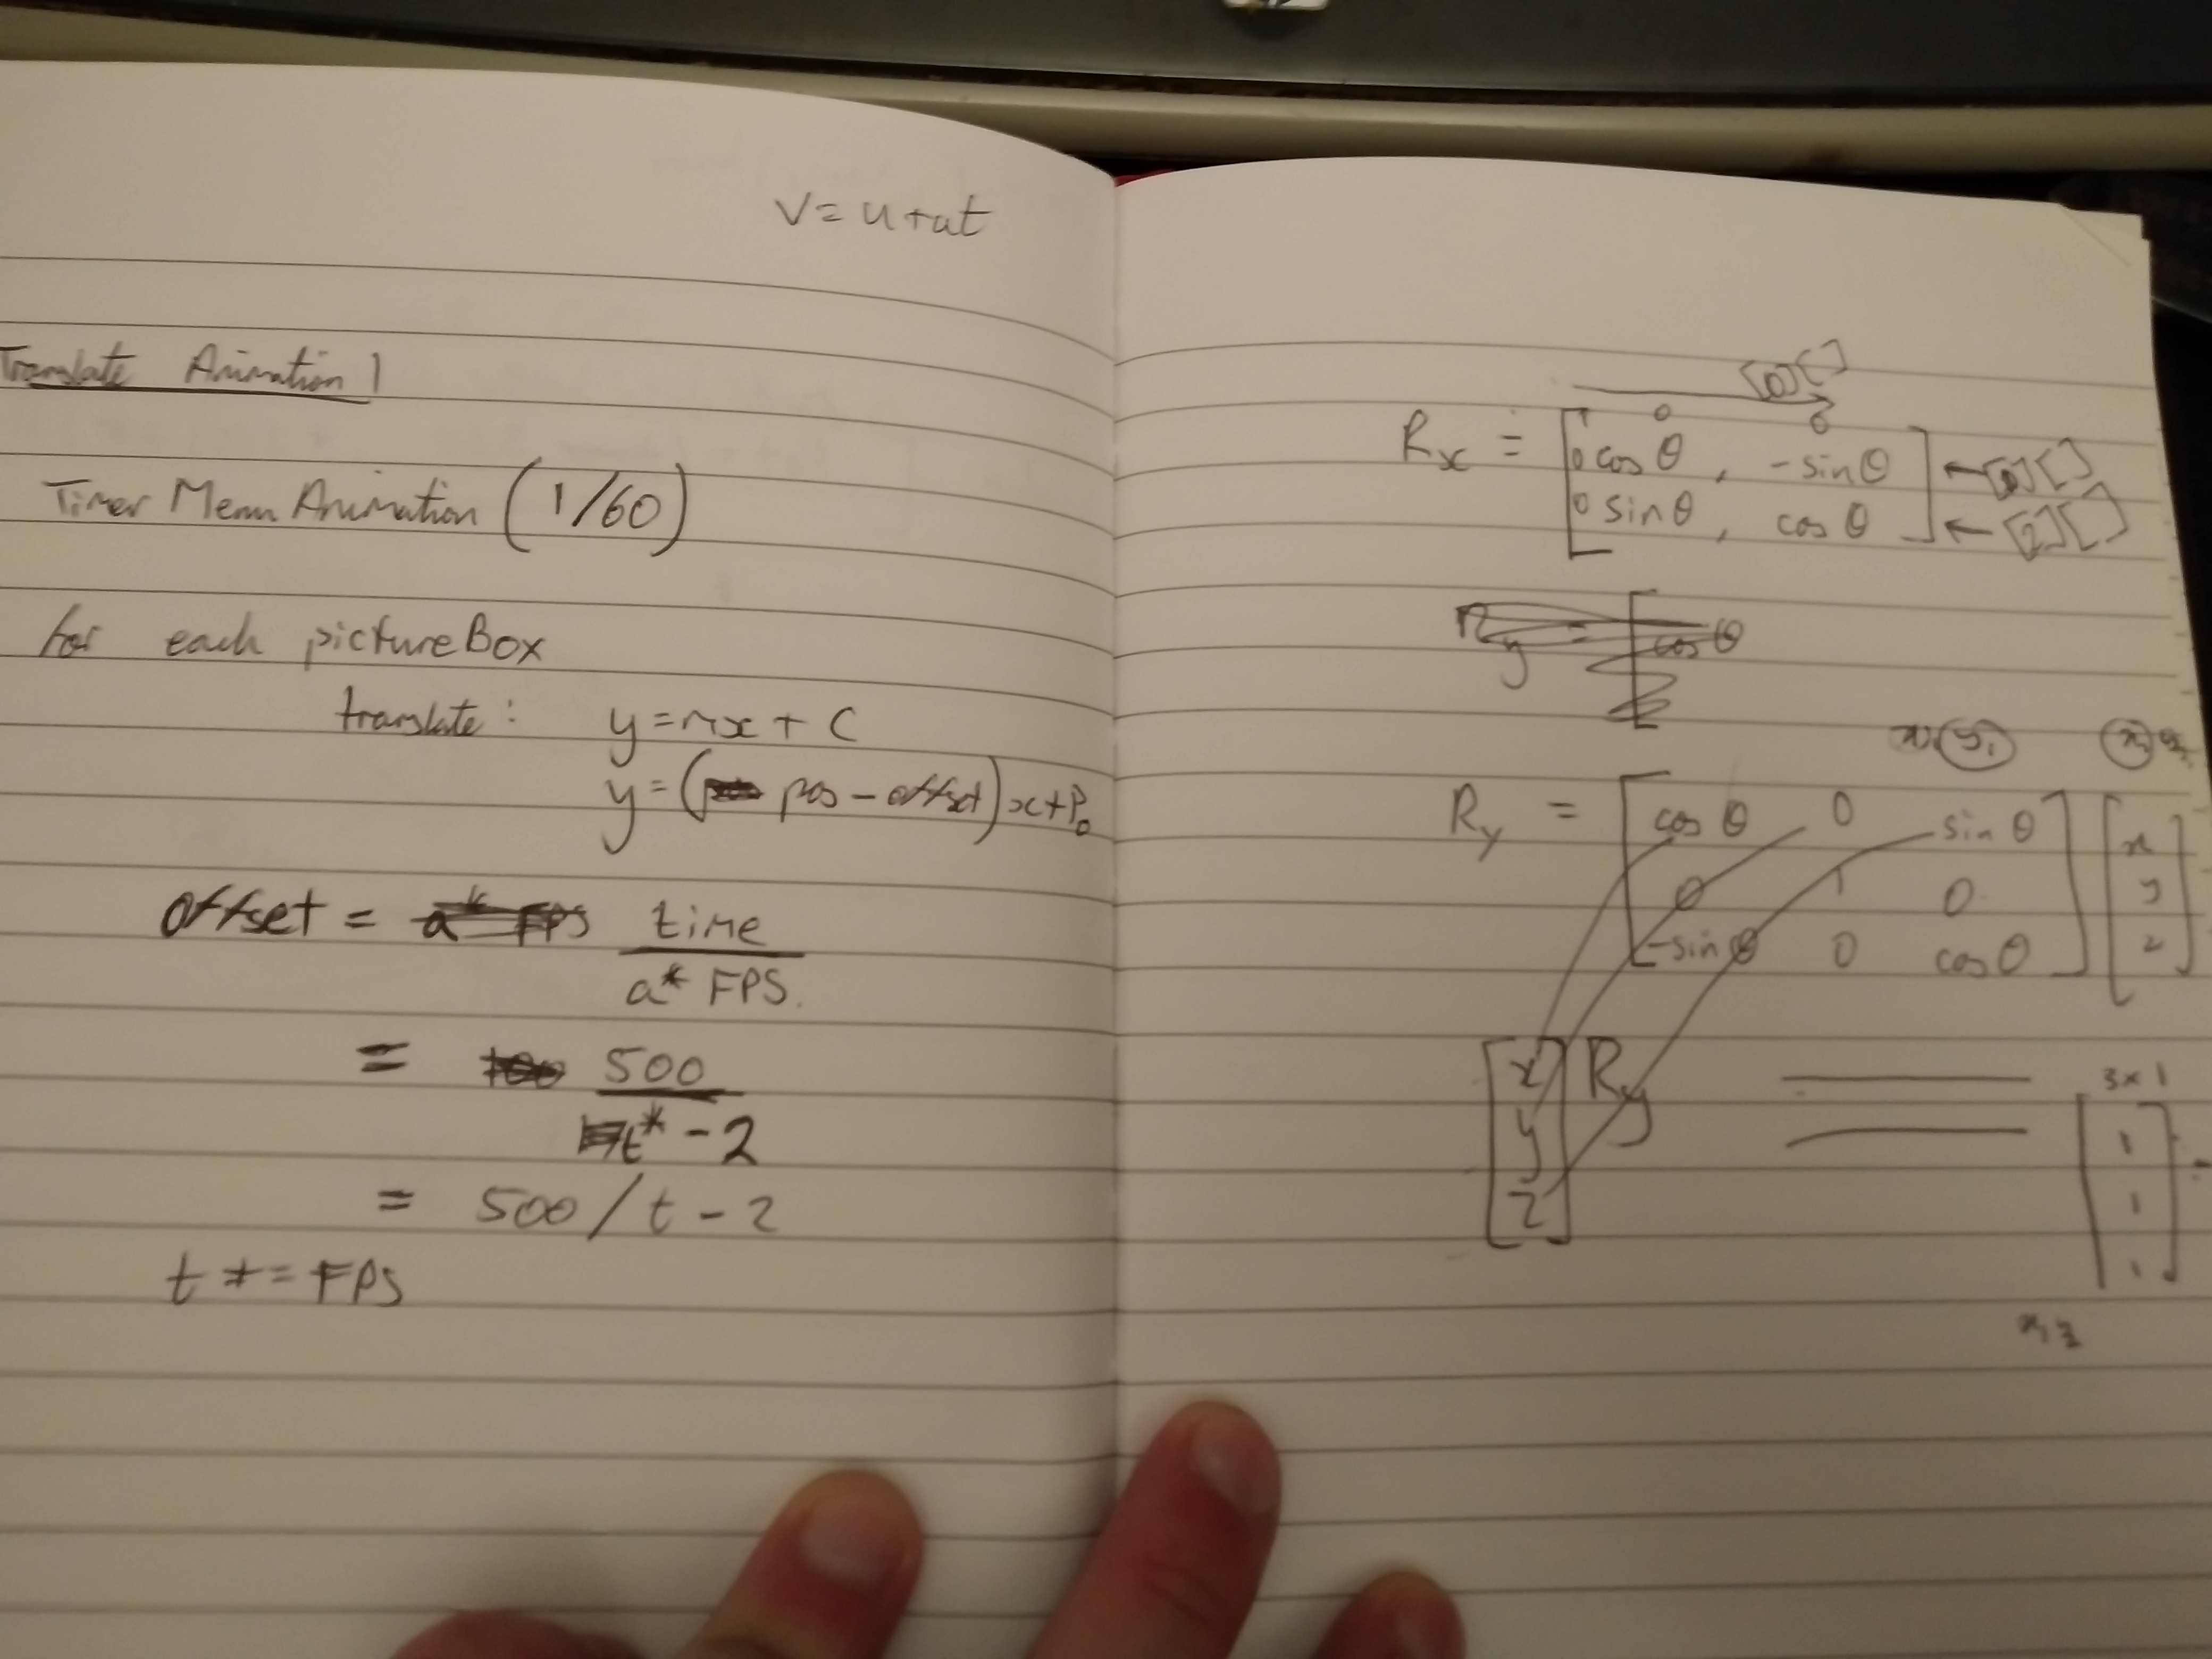 v = u + at
Translate Animation 1
Timer Menu Animation (1/60)
for each pictureBox
translate : y = mx + c
y = (pos - offset)x + P₀
offset = time
a* FPS.
= 500
t* - 2
= 500 / t - 2
t += FPS
[0][ ]
Rx = [ 1 0 0
0 cos θ , -sin θ ] ← [1][ ]
0 sin θ , cos θ ← [2][ ]
Ry = [ cos θ
y₁
Ry = [ cos θ 0 sin θ ] [ x
0 1 0 y
-sin θ 0 cos θ z ]
[ x ] Ry
y
z
3 x 1
[ 1
1
1 ]